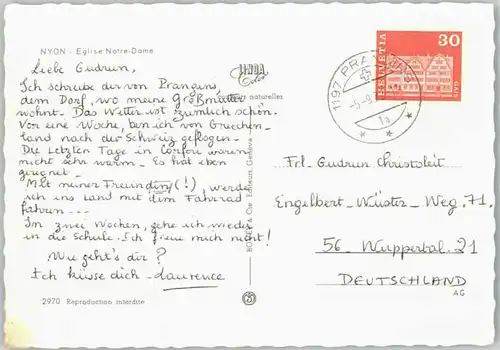 NYON - Eglise Notre-Dame
LINDA
Color
naturelles
Liebe Gudrun,
Ich schreibe der von Prangins,
dem Dorf, wo meine Großmutter
wohnt. Das Wetter ist ziemlich schön.
Vor eine Woche, bin ich von Griechen-
land nach der Schweiz geflogen.
Die letzten Tage in Corfou waren
nicht sehr warm - Es hat eben
geregnet -
Mit meiner Freundin (!), werde
ich ins Land mit dem Fahrrad
fahren ---
In zwei Wochen, gehe ich wieder
in die Schule. Ich freue mich nicht!
Wie geht's dir?
Ich küsse dich - Laurence
2970 Reproduction interdite
& Cie Editeurs, Genève
HELVETIA
30
GAIS
1197 PRANGINS
1a
Frl. Gudrun Christoleit
Engelbert-Wüster-Weg. 71.
56 - Wuppertal. 21
DEUTSCHLAND
AG